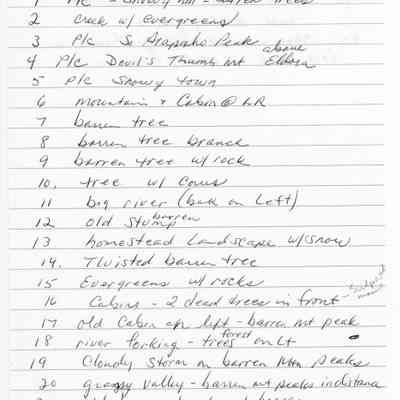 1 P/C - Snowy hill - barren trees
2 Creek w/ evergreens
3 P/C So Arapaho Peak
4 P/C Devil's Thumb Mt above Eldora
5 P/C Snowy town
6 Mountain & Cabin @ LR
7 barren tree
8 barren tree branch
9 barren tree w/ rock
10. tree w/ Cows
11 big river (bank on Left)
12 old stump barren
13 homestead Landscape w/ Snow
14. Twisted barren tree
15 Evergreens w/ rocks
16 Cabins - 2 dead trees in front -
17 old Cabin on left - barren mt peak
18 river forking - trees forest on Lt
19 Cloudy Storm on barren Mtn peaks
20 grassy valley - barren mt peaks in distance